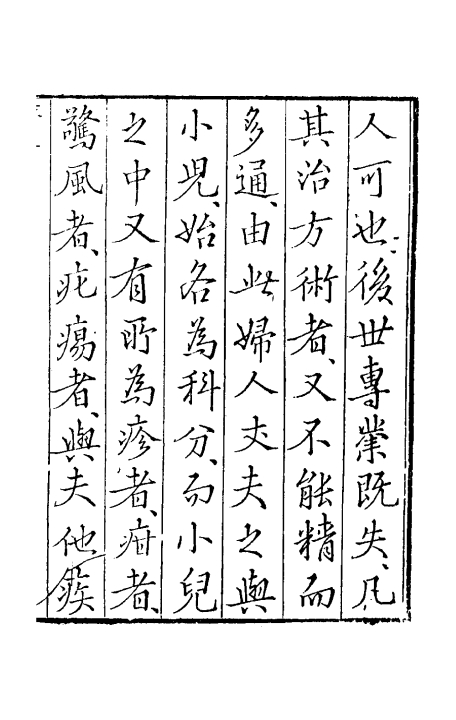 人可也後世專業既失、凡
其治方術者、又不能精而
多通、由此婦人丈夫之與
小児、始各為科分、而小兒
之中又有所為疹者、疳者、
驚風者、疕瘍者、與夫他